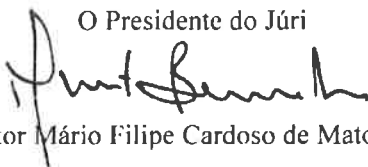 O Presidente do Júri
Mário Filipe Cardoso de Mato